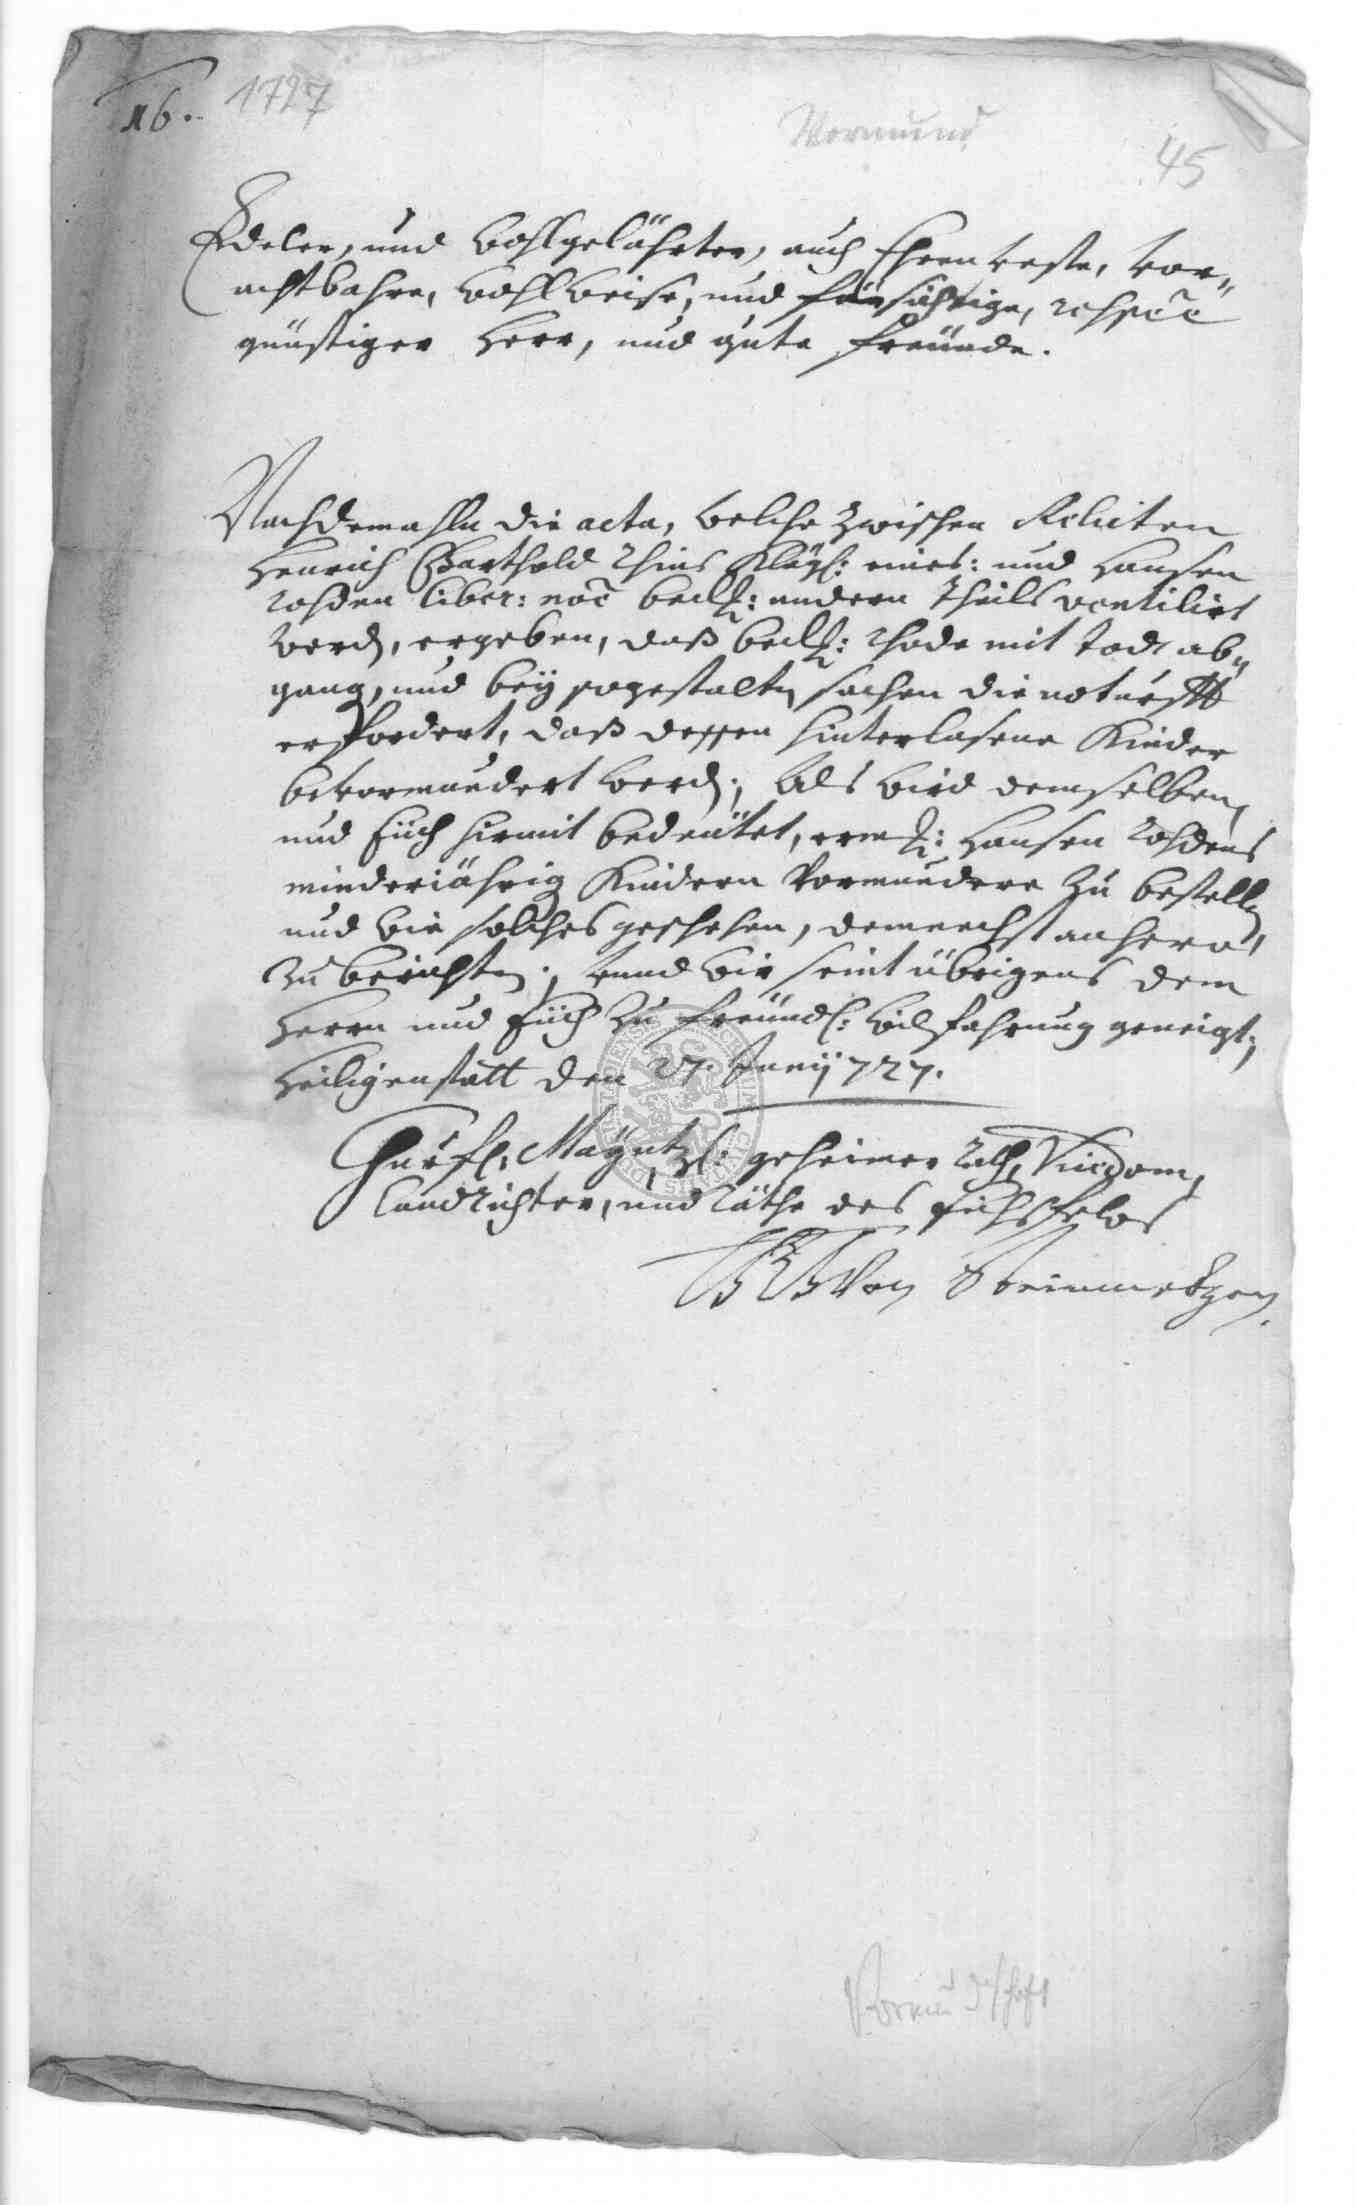 16. 1727
Vormund
45
Edeler, und wohlgelährter, auch Ehrenveste, vor„
achtbahre, wohlweise, und fürsichtige, respēē
günstiger Herr, und gute Freünde.
Nachdemahln die acta, welche zwischen Relicten
Henrich Barthold Klägl: eines: und Hansen
Rohden liber: noē beckl: andern Theils ventilirt
werd, ergeben, daß beckl: Rhode mit Tod ab„
gang, und beÿ sogestalten sachen die noturfft
erfordert, daß dessen hinterlasene Kinder
bevormundert werd; Als wird demselben,
und Eüch hiermit bedeütet, erml: Hansen Rohdens
minderjährig Kindern Vormundere zu bestellen
und wie solches geschehen, demnechst anhero,
zu berichten;Unnd wir seint übrigens dem
Herrn und Eüch zu freündl: wilfahrung geneigt;
Heiligenstatt den 27. Junÿ 727.
Churfl. Mayntzl: geheimer Rath, Vicedom,
Landrichter, und Räthe des Eichsfelds
von Steinmetzen
Vormundschaft